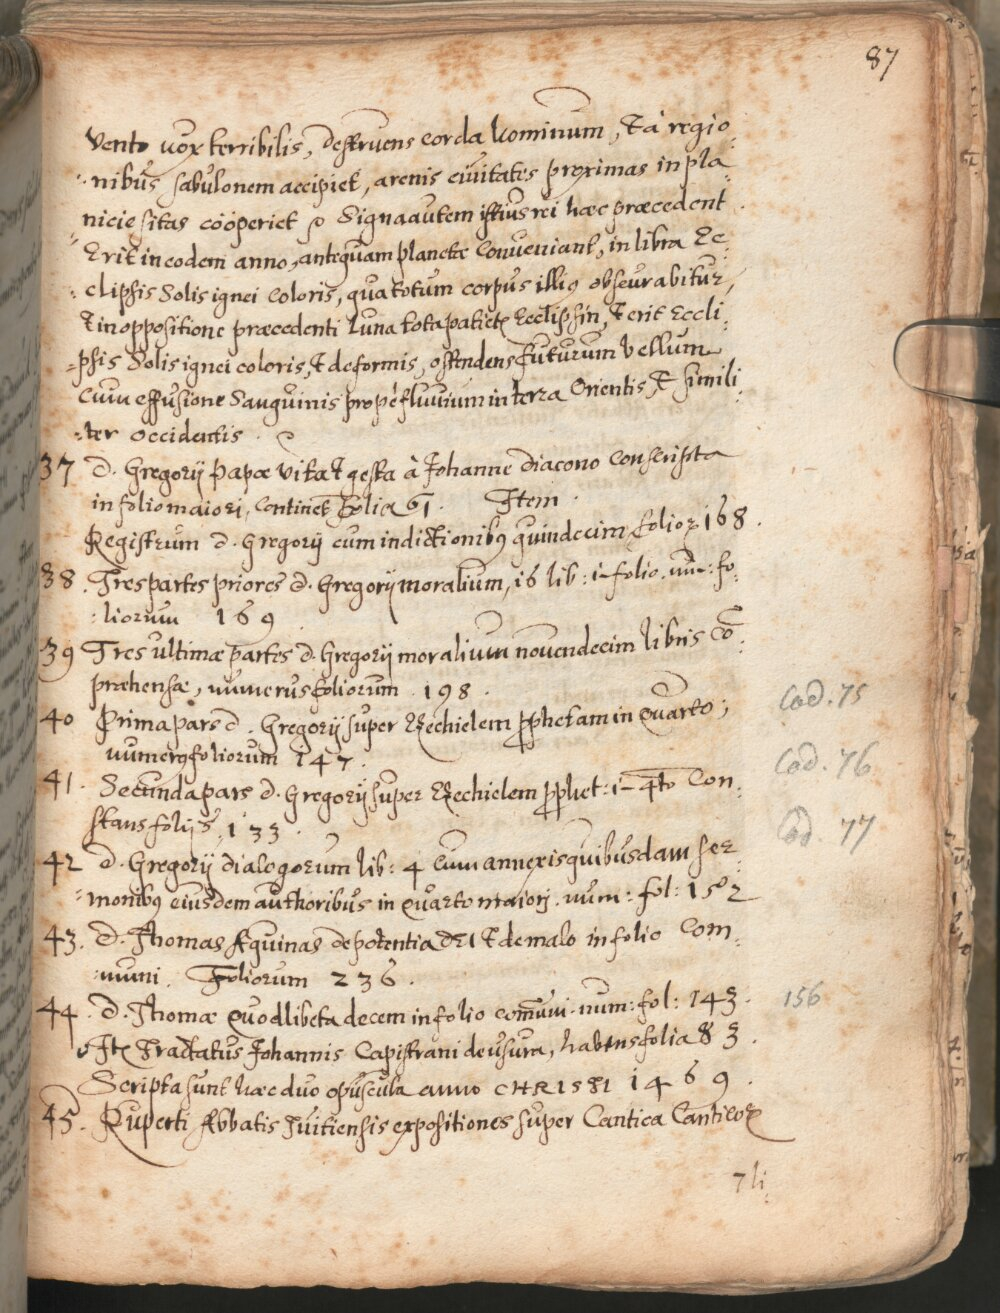 87
vento vox terribilis, destruens corda hominum, & à regio-
nibus sabulonem accipiet, arenis civitates proximas in pla-
nicie sitas cooperiet Signa autem istius rei hæc præcedent.
Erit in eodem anno, antequam planetæ conveniant, in libra Ec-
clipsis Solis ignei coloris, qua totum corpus illius obscurabitur,
& in oppositione præcedenti Luna tota patietur Ecclipsin, & erit Eccli-
psis Solis ignei coloris, & deformis, ostendens futurum bellum
cum effusione Sanguinis propè fluvium in terra Orientis, & simili-
ter occidentis.
37 d. Gregorij Papæ vita & gesta à Johanne diacono conscripta
in folio maiori, continet folia 61. Item
Registrum d. Gregorij cum indictionibus quindecim folior 168.
38. Tres partes priores d. Gregorij moralium, 16 lib: in folio. num: fo-
liorum 169.
39 Tres ultimæ partes d. Gregorij moralium novendecim libris cõ-
præhensæ, numerus foliorum. 198.
40 Prima pars d. Gregorij super Ezechielem prophetam in Quarto;
numerus foliorum 147.
Cod. 75
41. Secunda pars d. Gregorij super Ezechielem prophet: in 4to Con-
stans folijs 133.
Cod. 76
42 d. Gregorij dialogorum lib: 4 cum annexis quibusdam ser-
monibus eiusdem authoribus in Quarto maiorj. num: fol: 152
Cod. 77
43. d. Thomas Aquinas de potentia DEI & de malo in folio Com-
muni. Foliorum 236.
44. d. Thomæ Quodlibeta decem in folio comuni. num: fol: 143.
156
Itē Tractatus Johannis Capistrani de usura, habens folia 83.
Scripta sunt hæc duo opuscula anno CHRISTI 1469.
45. Ruperti Abbatis Tuitiensis expositiones super Cantica Canticor
7 li: